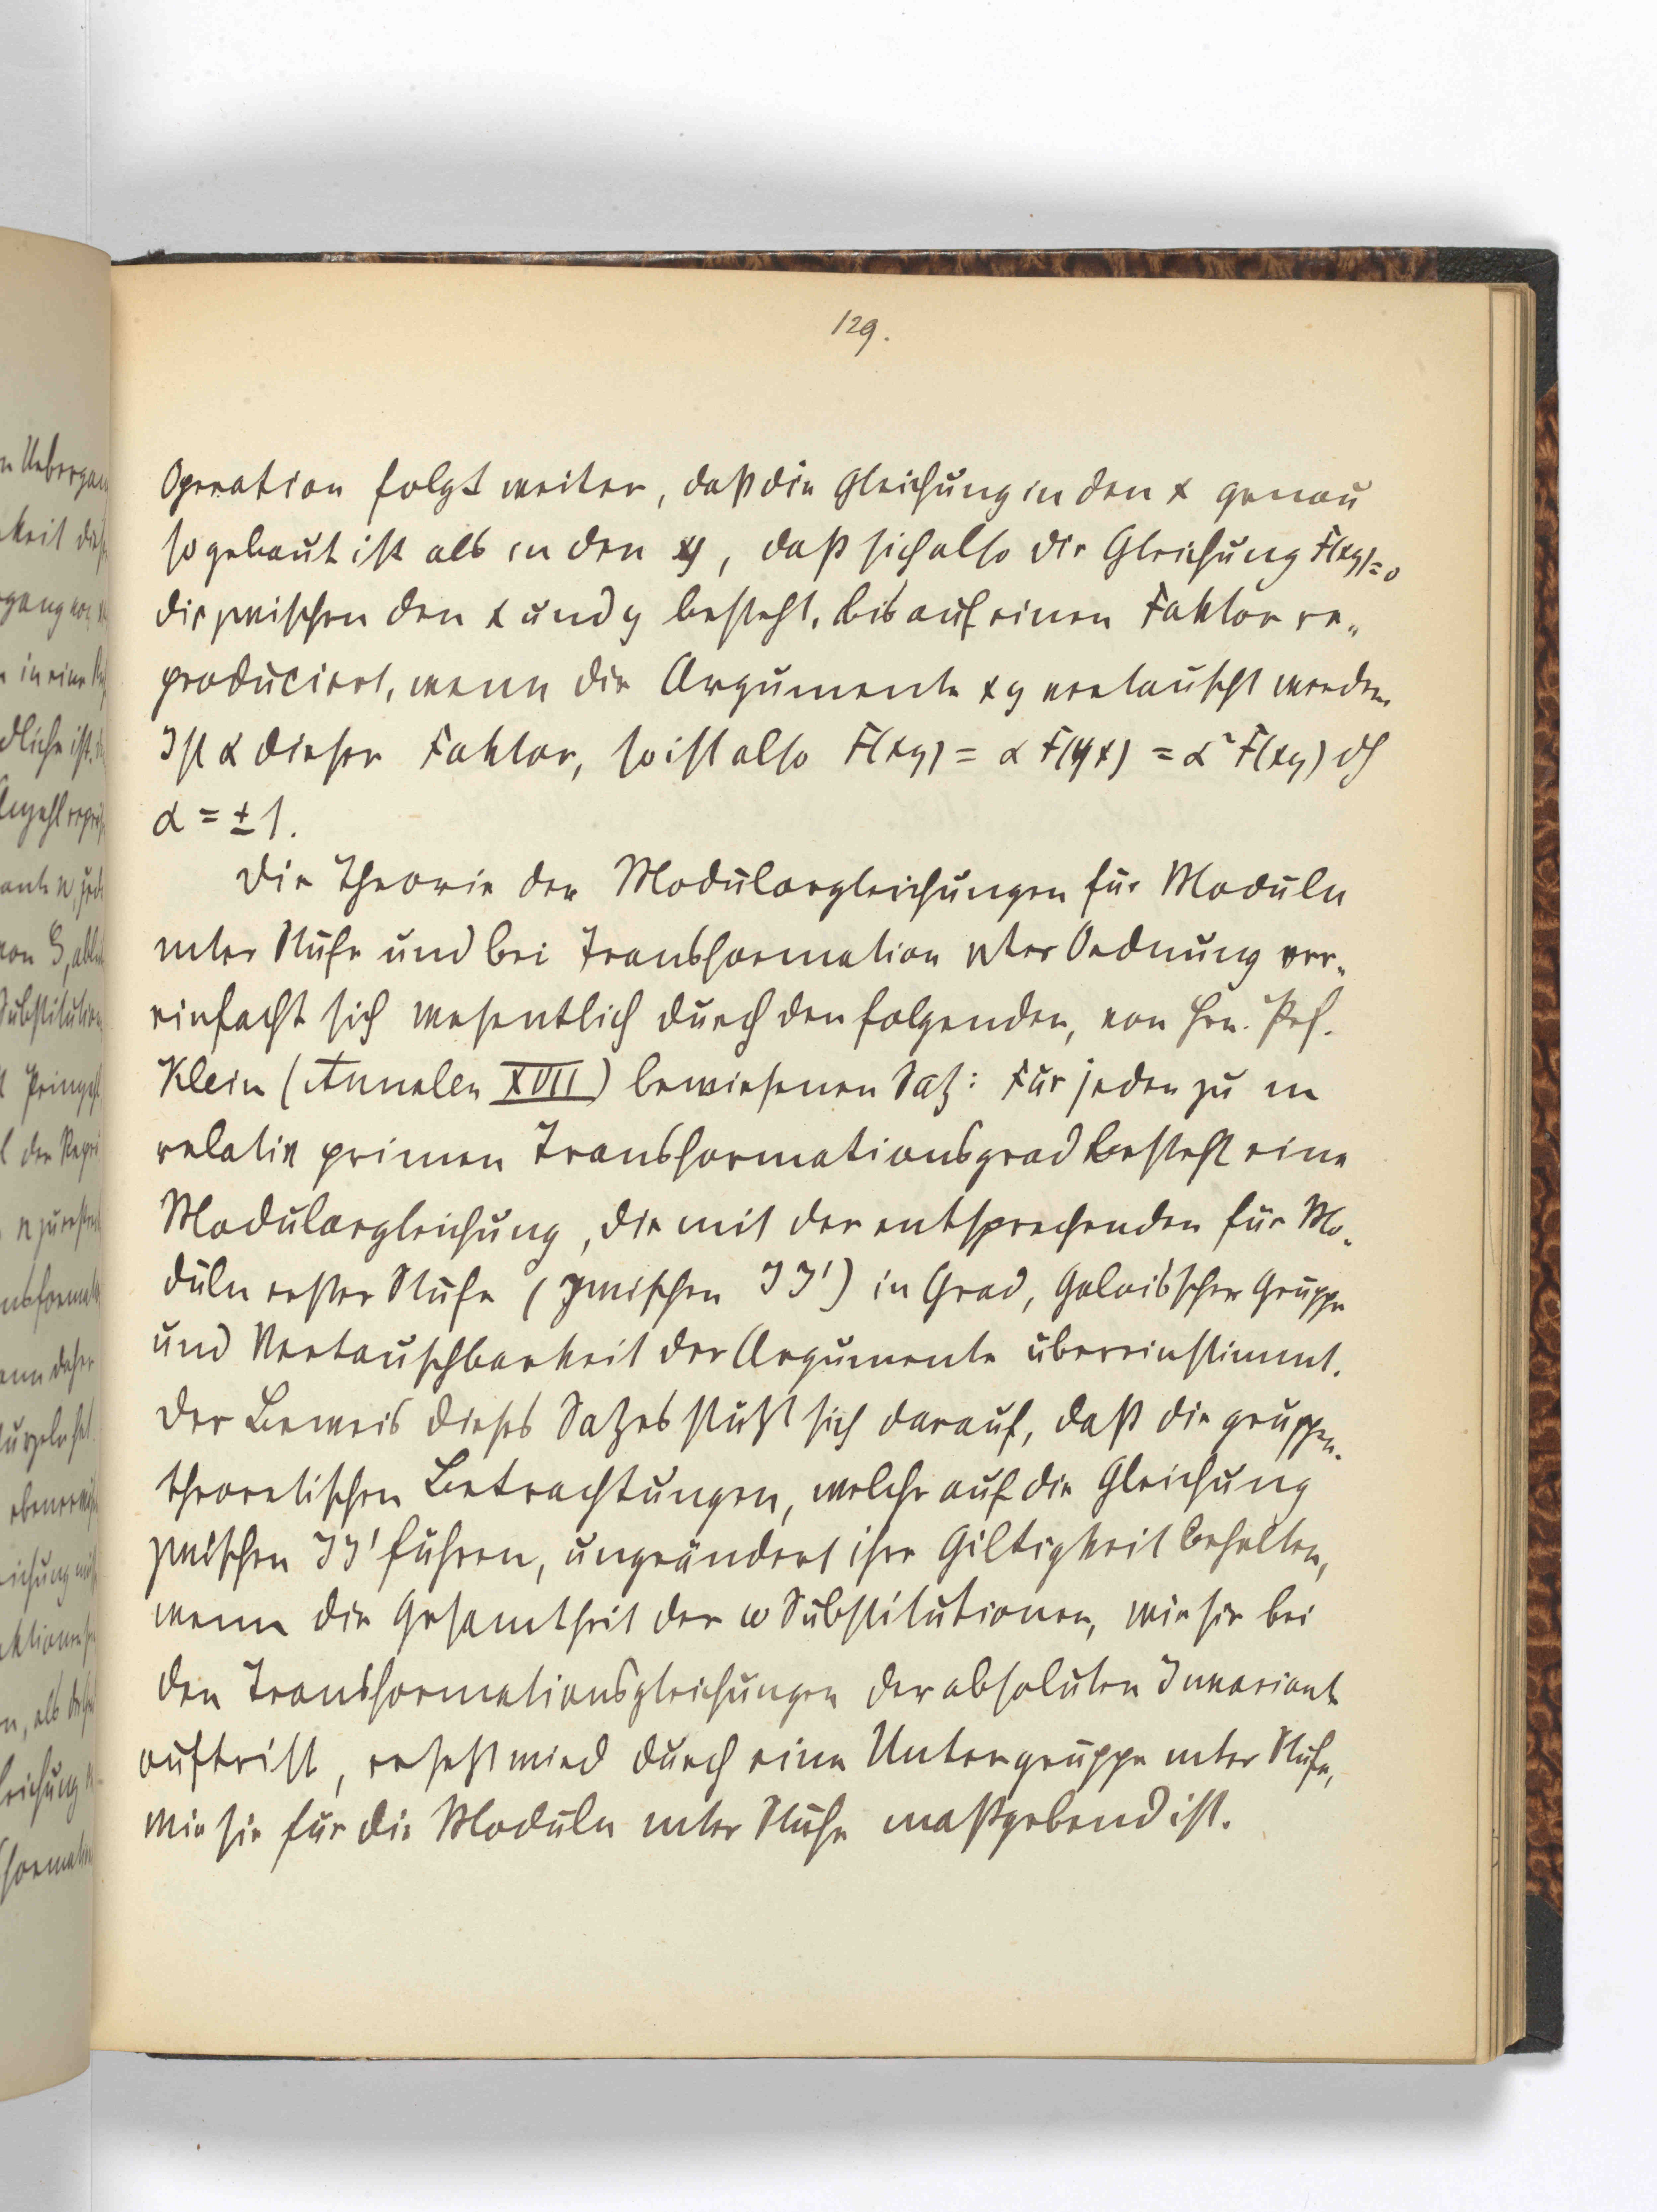 129.
Operation folgt weiter, daß die Gleichung in den x genau
so gebaut ist als in den y, daß sich also die Gleichung F(xy)=0
die zwischen den x und y besteht, bis auf einen Faktor re-
produciert, wenn die Argumente x y vertauscht werden.
Ist α dieser Faktor, so ist also F(xy) = α F(yx) = α² F(xy) dh
α = ± 1.
Die Theorie der Modulargleichungen für Moduln
mter Stufe und bei Transformation nter Ordnung ver-
einfacht sich wesentlich durch den folgenden, von Hrn. Prof.
Klein (Annalen XVII) bewiesenen Satz: Für jeden zu m
relativ primen Transformationsgrad besteht eine
Modulargleichung, die mit der entsprechenden für Mo-
duln erster Stufe (zwischen J J') in Grad, Galois'scher Gruppe
und Vertauschbarkeit der Argumente übereinstimmt.
Der Beweis dieses Satzes stützt sich darauf, daß die gruppen-
theoretischen Betrachtungen, welche auf die Gleichung
zwischen J J' führen, ungeändert ihre Giltigkeit behalten,
wenn die Gesamtheit der ω Substitutionen, wie sie bei
den Transformationsgleichungen der absoluten Invariante
auftritt, ersetzt wird durch eine Untergruppe mter Stufe,
wie sie für die Moduln mter Stufe maßgebend ist.